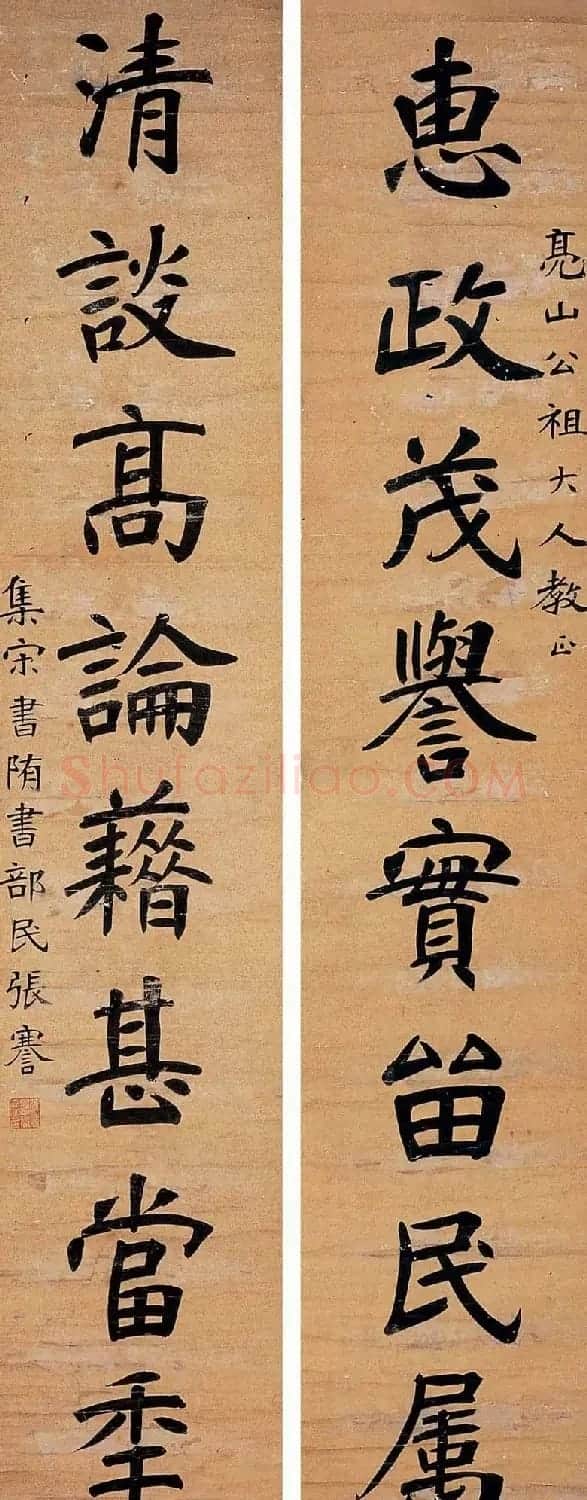 亮山公祖大人教正
惠政茂譽實留民属
清談髙論藉甚當秊
集宋書隋書部民張謇
Shufaziliao.COM